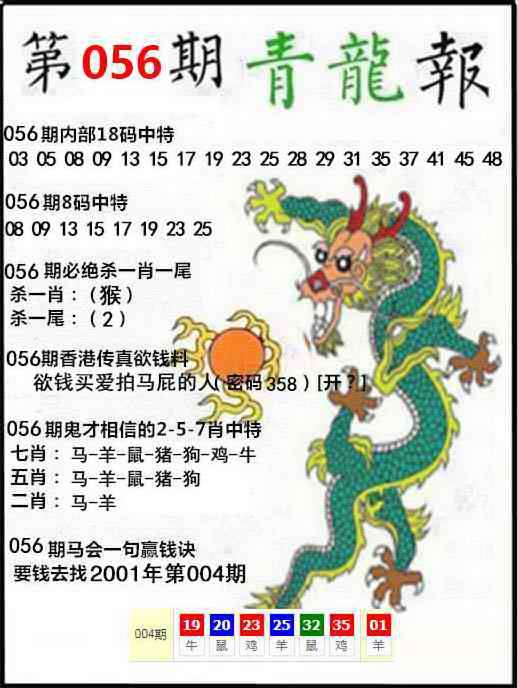 第056期 青龍報
056期内部18码中特
03 05 08 09 13 15 17 19 23 25 28 29 31 35 37 41 45 48
056期8码中特
08 09 13 15 17 19 23 25
056期必绝杀一肖一尾
杀一肖：(猴)
杀一尾：(2)
056期香港传真欲钱料
欲钱买爱拍马屁的人(密码358)[开?]
056期鬼才相信的2-5-7肖中特
七肖：马-羊-鼠-猪-狗-鸡-牛
五肖：马-羊-鼠-猪-狗
二肖：马-羊
056期马会一句赢钱诀
要钱去找2001年第004期
004期 19 20 23 25 32 35 01
牛 鼠 鸡 羊 鼠 鸡 羊